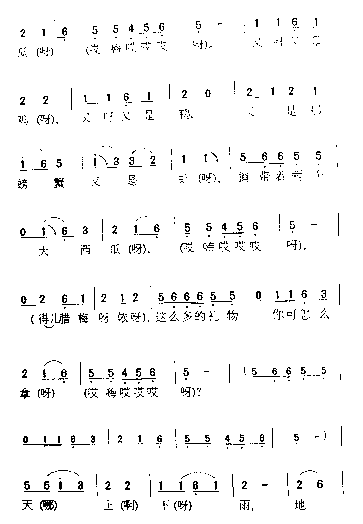 2 1 6 | 5 5 4 5 6 | 5 - | 1 1 6 1
瓜 (呀) (哎 梅哎哎哎 呀). 又 呀 又 是
2 2 | 1 1 6 1 | 2 0 | 2 1 2 1
鸡 (呀), 又 呀 又 是 鹅, 又 是
1 6 5 | 1 3 3 2 | 1 1 | 5 6 6 5 5
螃 蟹 又 是 虾 (呀), 还 带 着 两 个
0 1 6 3 | 2 1 6 | 5 5 4 5 6 | 5 -
大 西 瓜 (呀). (哎 梅哎哎哎 呀.
0 2 6 1 | 2 1 2 | 5 6 6 6 5 5 | 0 1 1 6 3
(得儿腊 梅 呀 嗳呀), 这么 多的 礼物 你可怎么
2 1 6 | 5 5 4 5 6 | 5 - | 5 6 6 5 5
拿 (呀) (哎 梅哎哎哎 呀)?
0 1 1 6 3 | 2 1 6 | 5 5 4 5 6 | 5 -
5 5 1 3 | 2 2 1 | 1 1 6 1 | 5 - | 2 6
天 (哪) 上 (啊) 下 (呀) 雨, 地